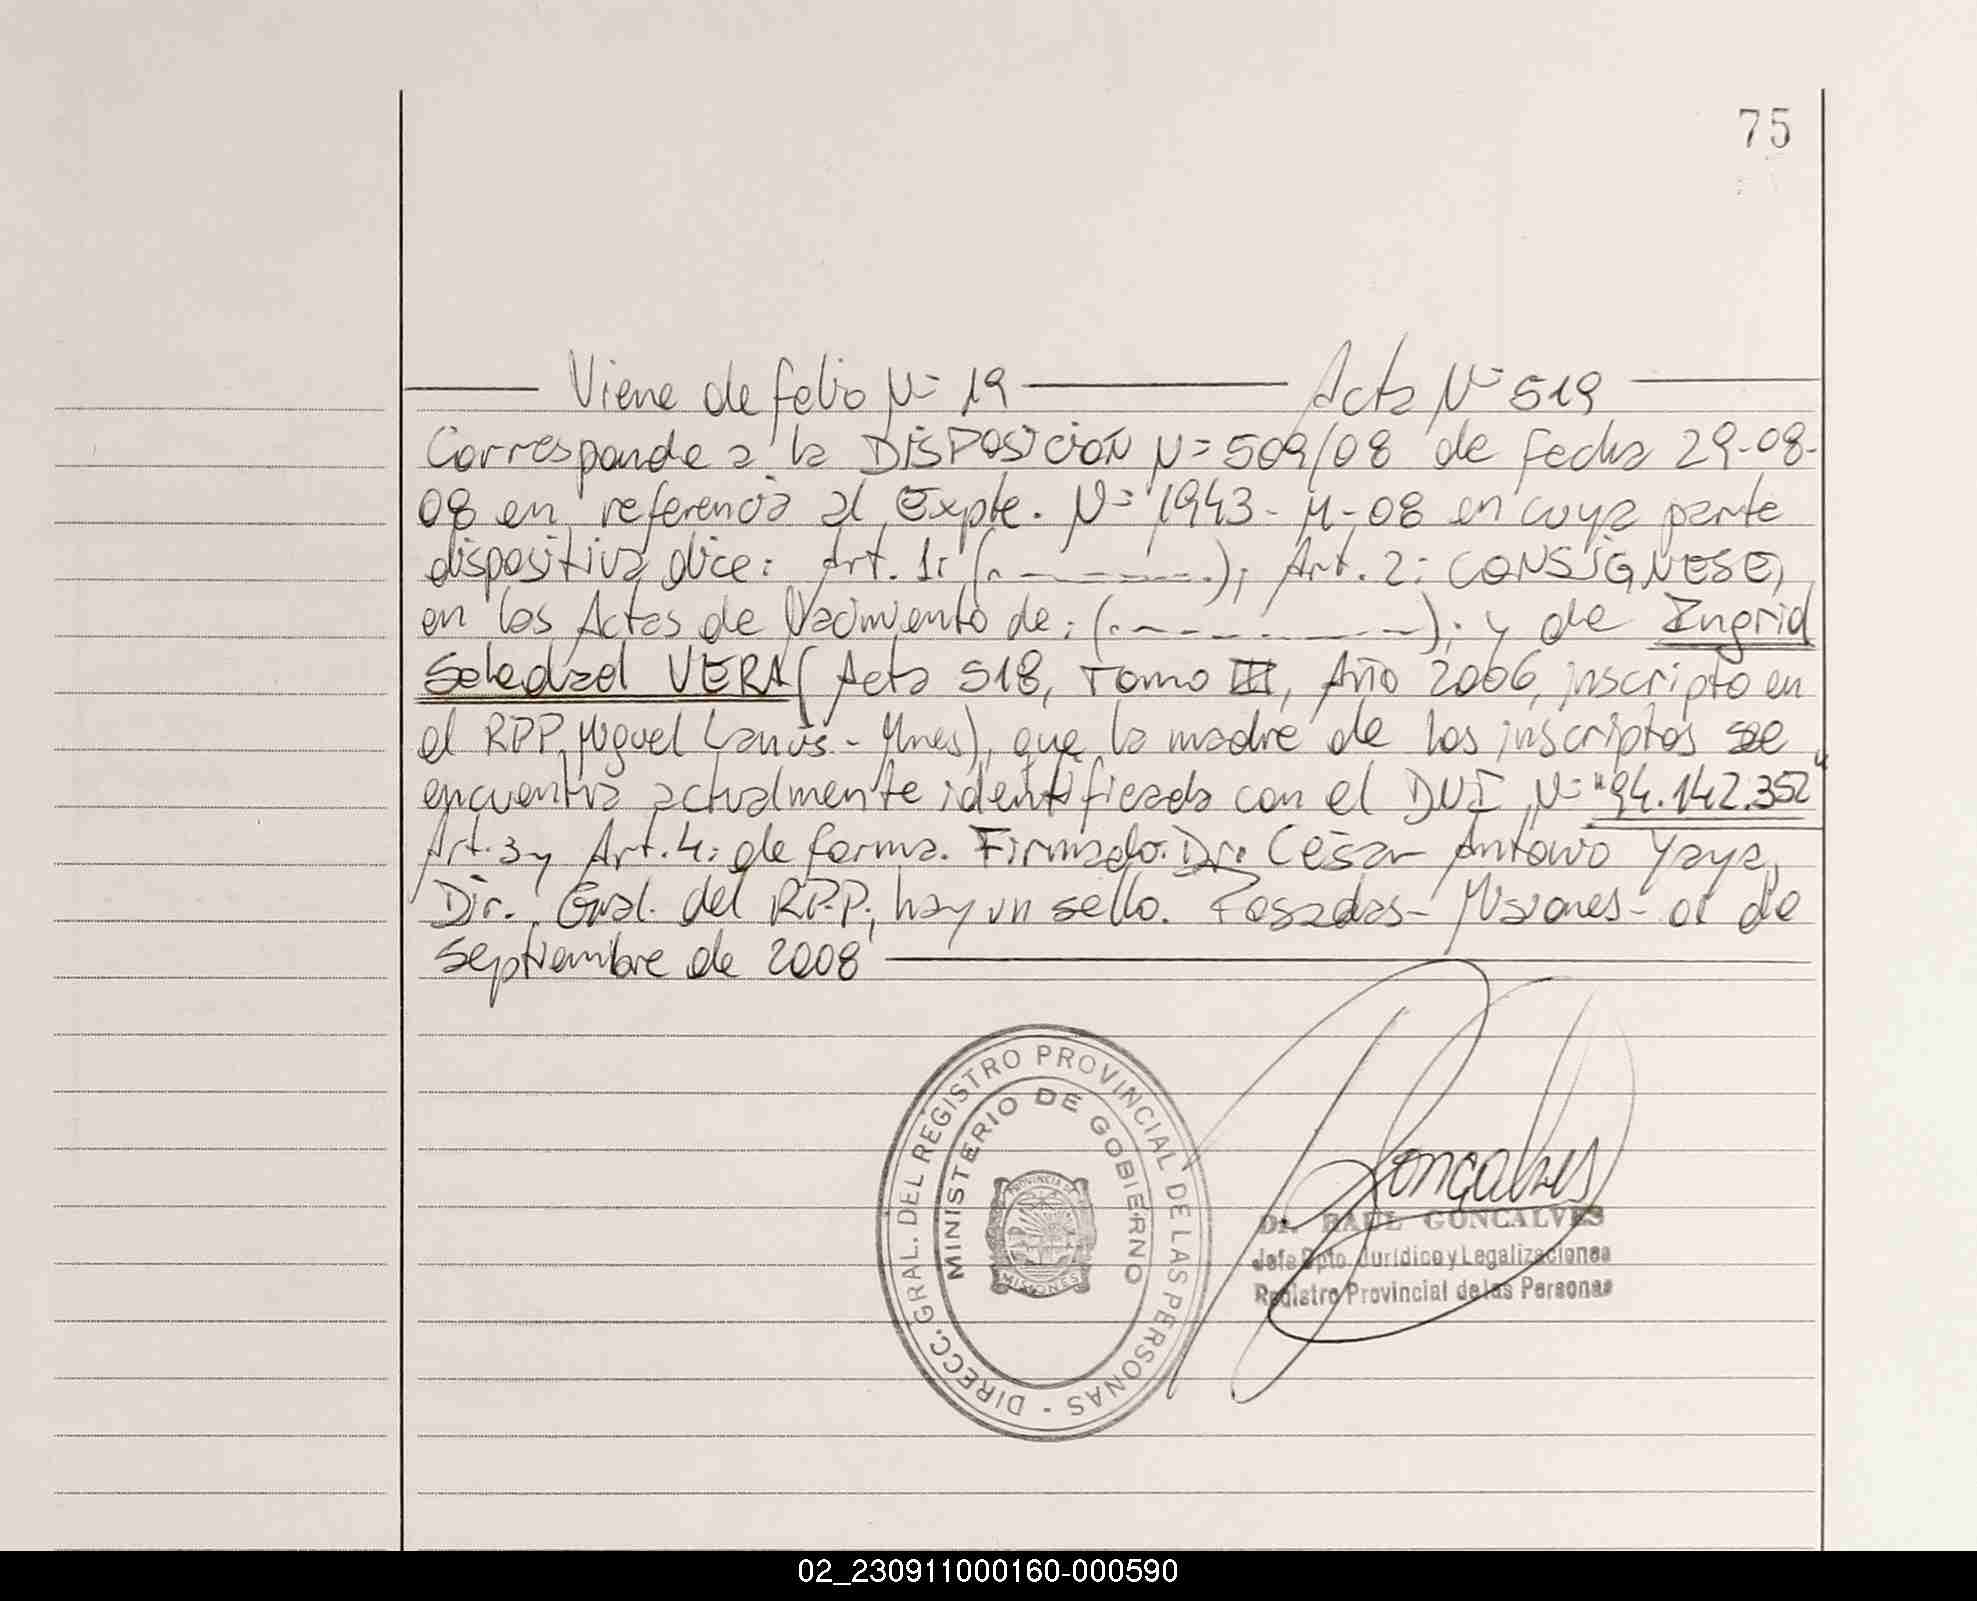 75
Viene de folio Nº 19 Acta Nº 519
Corresponde a la DISPOSICION Nº 509/08 de fecha 29-08-
08 en referencia al Expte. Nº 1943-M-08 en cuya parte
dispositiva dice: Art. 1: (. _ _ _ _ _ .); Art. 2: CONSIGNESE,
en las Actas de Nacimiento de: (. _ _ _ _ _ _ _ ). y de Ingrid
Soledad VERA (Acta 518, Tomo III, Año 2006, inscripto en
el RPP, Miguel Lanús - Mnes), que la madre de los inscriptos se
encuentra actualmente identificada con el DNI Nº "94.142.352"
Art. 3 y Art. 4: de forma. Firmado: Dr. César Antonio Yaya,
Dir. Gral. del R.P.P., hay un sello. Posadas - Misiones - 01 de
septiembre de 2008
DIRECC. GRAL. DEL REGISTRO PROVINCIAL DE LAS PERSONAS -
MINISTERIO DE GOBIERNO
PROVINCIA DE
MISIONES
Gonçalves
Dr. RAUL GONCALVES
Jefe Dpto. Jurídico y Legalizaciones
Registro Provincial de las Personas
02_230911000160-000590